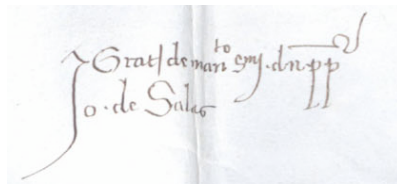 Grat(is) de man^to s^mi . d . n . pp
Jo . de Salas